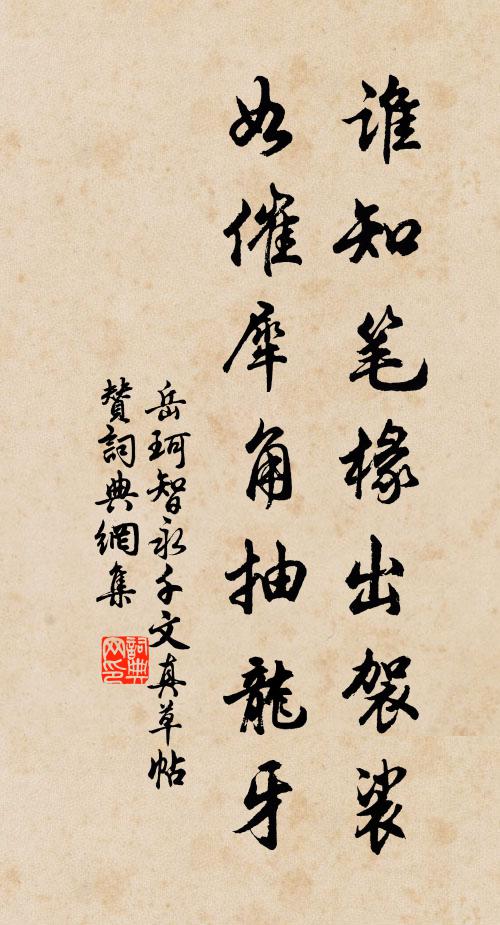 谁知笔椽出袈裟
如催犀角抽龍牙
岳珂智永千文真草帖
賛詞典網集
詞典
网印